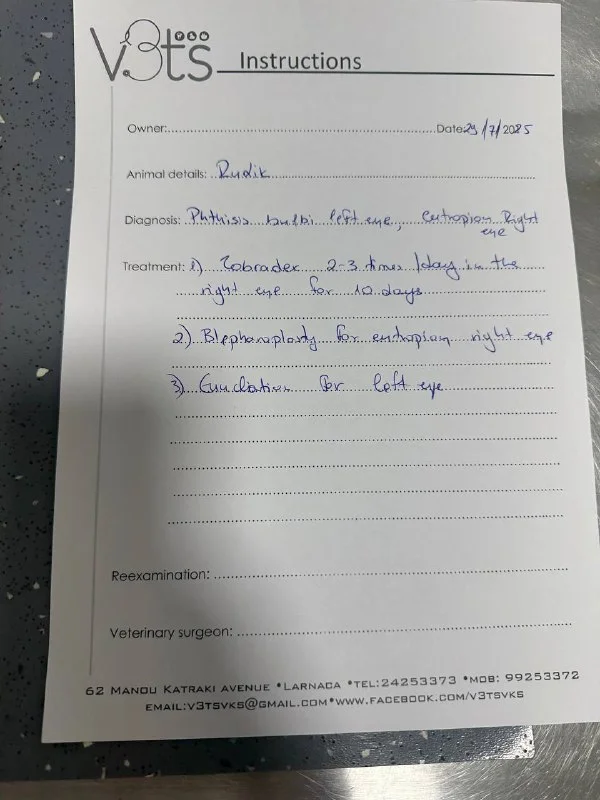 V3ts
Instructions
Owner:
Date: 29/7/2025
Animal details: Rudik
Diagnosis: Phthisis bulbi left eye, entropion Right
eye
Treatment: 1) Tobradex 2-3 times /day in the
right eye for 10 days
2) Blepharoplasty for entropion right eye
3) Enucleation for left eye
Reexamination:
Veterinary surgeon:
62 MANOU KATRAKI AVENUE *LARNACA *TEL:24253373 *MOB: 99253372
EMAIL:V3TSVKS@GMAIL.COM*WWW.FACEBOOK.COM/V3TSVKS